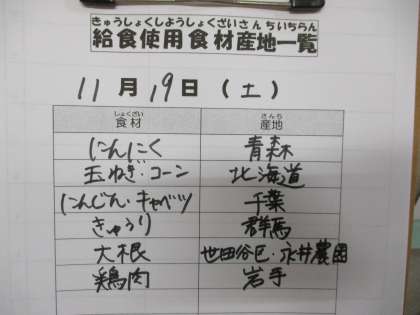 きゅうしょくしようしょくざいさんちいちらん
給食使用食材産地一覧
11月19日(土)
しょくざい さんち
食材 産地
にんにく 青森
玉ねぎ・コーン 北海道
にんじん・キャベツ 千葉
きゅうり 群馬
大根 世田谷区・永井農園
鶏肉 岩手